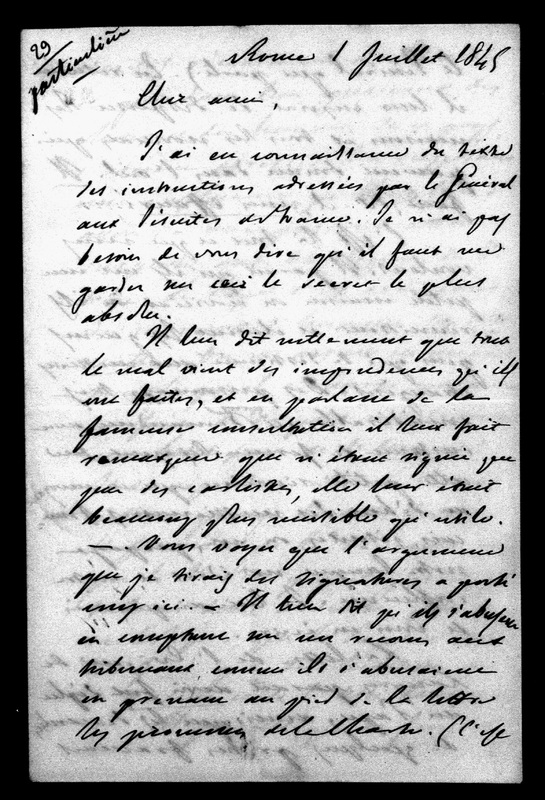 29
particulière
Rome 1 Juillet 1845
Cher ami,
J'ai eu connaissance du texte
des instructions adressées par le Général
aux Jésuites de France. Je n'ai pas
besoin de vous dire qu'il faut me
garder sur ceci le secret le plus
absolu.
Il leur dit nettement que tout
le mal vient des imprudences qu'ils
ont faites, et en parlant de la
fameuse consultation il leur fait
remarquer que n'étant signée que
par des carlistes, elle leur était
beaucoup plus nuisible qu'utile.
—. Vous voyez que l'argument
que je tirais des signatures a porté
coup ici. — Il leur dit qu'ils s'abusent
en comptant sur un recours aux
tribunaux, comme ils s'abusaient
en prenant au pied de la lettre
les promesses de la Charte. (C'est